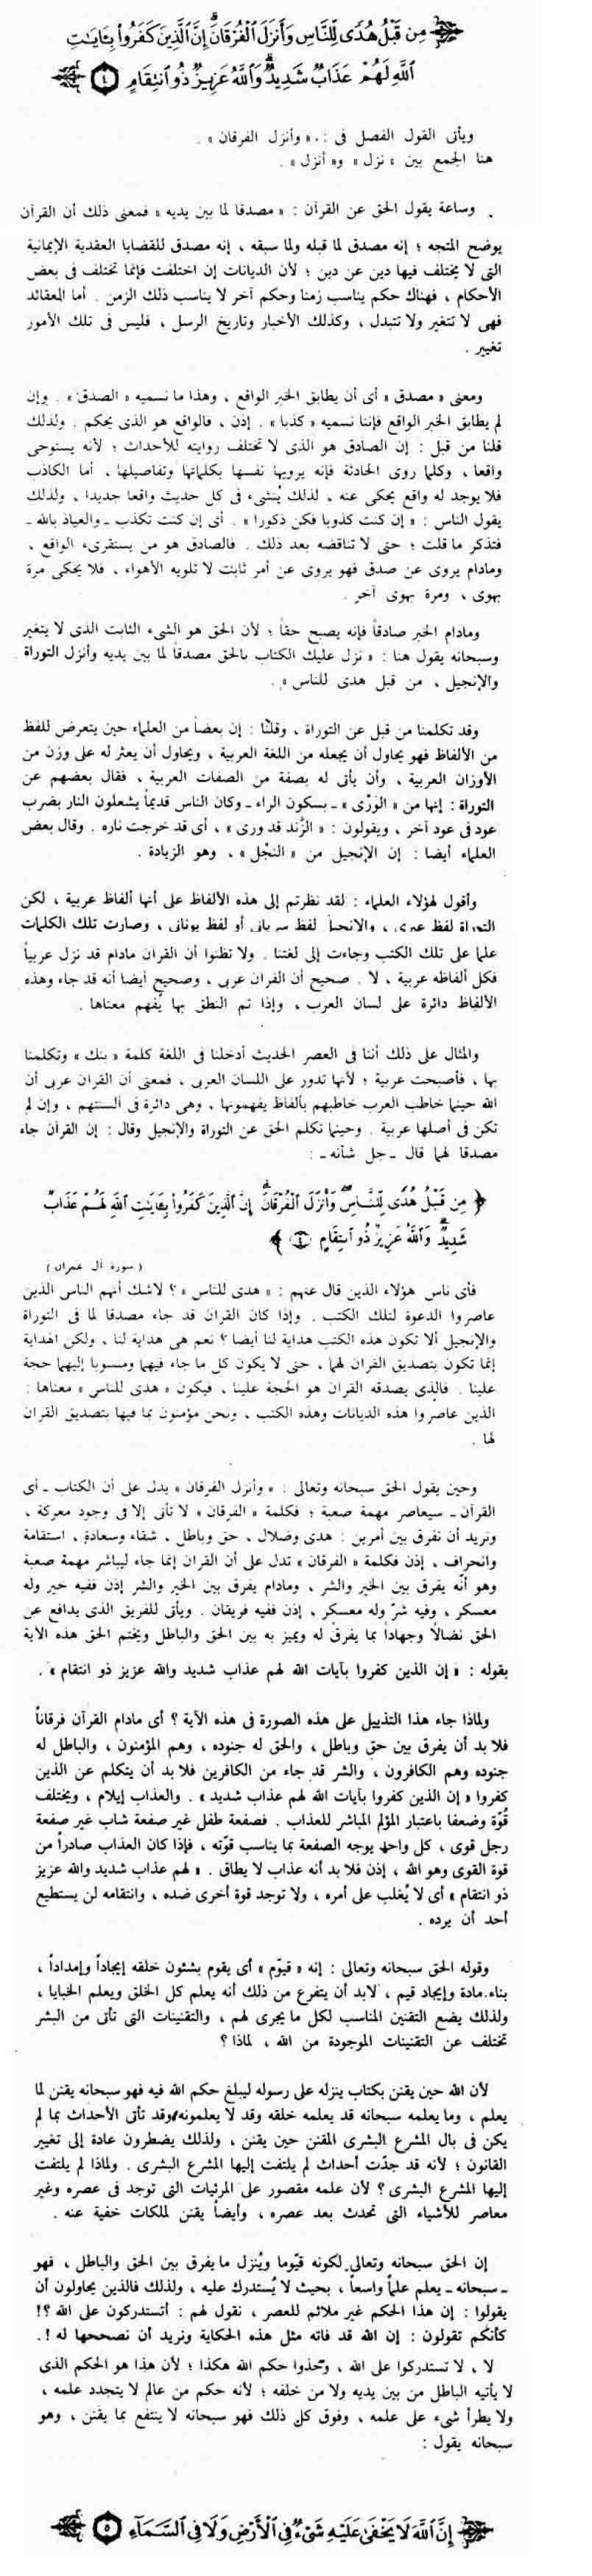 مِن قَبْلُ هُدًى لِّلنَّاسِ وَأَنزَلَ ٱلْفُرْقَانَۗ إِنَّ ٱلَّذِينَ كَفَرُوا۟ بِـَٔايَـٰتِ
ٱللَّهِ لَهُمْ عَذَابٌ شَدِيدٌۗ وَٱللَّهُ عَزِيزٌ ذُو ٱنتِقَامٍ ٤
ويأتى القول الفصل فى : « وأنزل الفرقان » .
هنا الجمع بين « نزل » و« أنزل » .
وساعة يقول الحق عن القرآن : « مصدقا لما بين يديه » فمعنى ذلك أن القرآن
يوضح المتجه ؛ إنه مصدق لما قبله ولما سبقه ، إنه مصدق للقضايا العقدية الإيمانية
التى لا يختلف فيها دين عن دين ؛ لأن الديانات إن اختلفت فإنما تختلف فى بعض
الأحكام ، فهناك حكم يناسب زمنا وحكم آخر لا يناسب ذلك الزمن . أما العقائد
فهى لا تتغير ولا تتبدل ، وكذلك الأخبار وتاريخ الرسل ، فليس فى تلك الأمور
تغيير .
ومعنى « مصدق » أى أن يطابق الخبر الواقع ، وهذا ما نسميه « الصدق » . وإن
لم يطابق الخبر الواقع فإننا نسميه « كذبا » . إذن ، فالواقع هو الذى يحكم . ولذلك
قلنا من قبل : إن الصادق هو الذى لا تختلف روايته للأحداث ؛ لأنه يستوحى
واقعا ، وكلما روى الحادثة فإنه يرويها نفسها بكلماتها وتفاصيلها ، أما الكاذب
فلا يوجد له واقع يحكى عنه ، لذلك يُنشىء فى كل حديث واقعا جديدا ، ولذلك
يقول الناس : « إن كنت كذوبا فكن ذكورا » . أى إن كنت تكذب ـ والعياذ بالله ـ
فتذكر ما قلت ؛ حتى لا تناقضه بعد ذلك . فالصادق هو من يستقرىء الواقع ،
ومادام يروى عن صدق فهو يروى عن أمر ثابت لا تلويه الأهواء ، فلا يحكى مرة
بهوى ، ومرة بهوى آخر .
ومادام الخبر صادقاً فإنه يصبح حقاً ؛ لأن الحق هو الشىء الثابت الذى لا يتغير
وسبحانه يقول هنا : « نزل عليك الكتاب بالحق مصدقاً لما بين يديه وأنزل التوراة
والإنجيل ، من قبل هدى للناس » .
وقد تكلمنا من قبل عن التوراة ، وقلنا : إن بعضاً من العلماء حين يتعرض للفظ
من الألفاظ فهو يحاول أن يجعله من اللغة العربية ، ويحاول أن يعثر له على وزن من
الأوزان العربية ، وأن يأتى له بصفة من الصفات العربية ، فقال بعضهم عن
التوراة : إنها من « الوَرْى » ـ بسكون الراء ـ وكان الناس قديماً يشعلون النار بضرب
عود فى عود آخر ، ويقولون : « الزَّند قد ورى » ، أى قد خرجت ناره . وقال بعض
العلماء أيضا : إن الإنجيل من « النجْل » ، وهو الزيادة .
وأقول لهؤلاء العلماء : لقد نظرتم إلى هذه الألفاظ على أنها ألفاظ عربية ، لكن
التوراة لفظ عبرى ، والإنجيل لفظ سريانى أو لفظ يونانى ، وصارت تلك الكلمات
علما على تلك الكتب وجاءت إلى لغتنا . ولا تظنوا أن القرآن مادام قد نزل عربياً
فكل ألفاظه عربية ، لا . صحيح أن القرآن عربى ، وصحيح أيضا أنه قد جاء وهذه
الألفاظ دائرة على لسان العرب ، وإذا تم النطق بها يُفهم معناها .
والمثال على ذلك أننا فى العصر الحديث أدخلنا فى اللغة كلمة « بنك » وتكلمنا
بها ، فأصبحت عربية ؛ لأنها تدور على اللسان العربى ، فمعنى أن القرآن عربى أن
الله حينما خاطب العرب خاطبهم بألفاظ يفهمونها ، وهى دائرة فى ألسنتهم ، وإن لم
تكن فى أصلها عربية . وحينما تكلم الحق عن التوراة والإنجيل وقال : إن القرآن جاء
مصدقا لهما قال ـ جل شأنه ـ :
﴿ مِن قَبْلُ هُدًى لِّلنَّاسِ وَأَنزَلَ ٱلْفُرْقَانَۗ إِنَّ ٱلَّذِينَ كَفَرُوا۟ بِـَٔايَـٰتِ ٱللَّهِ لَهُمْ عَذَابٌ
شَدِيدٌۗ وَٱللَّهُ عَزِيزٌ ذُو ٱنتِقَامٍ ٤ ﴾
( سورة آل عمران )
فأى ناس هؤلاء الذين قال عنهم : « هدى للناس » ؟ لاشك أنهم الناس الذين
عاصروا الدعوة لتلك الكتب . وإذا كان القرآن قد جاء مصدقا لما فى التوراة
والإنجيل ألا تكون هذه الكتب هداية لنا أيضا ؟ نعم هى هداية لنا ، ولكن الهداية
إنما تكون بتصديق القرآن لهما ، حتى لا يكون كل ما جاء فيهما ومنسوبا إليهما حجة
علينا . فالذى يصدقه القرآن هو الحجة علينا ، فيكون « هدى للناس » معناها :
الذين عاصروا هذه الديانات وهذه الكتب ، ونحن مؤمنون بما فيها بتصديق القرآن
لها .
وحين يقول الحق سبحانه وتعالى : « وأنزل الفرقان » يدل على أن الكتاب ـ أى
القرآن ـ سيعاصر مهمة صعبة ؛ فكلمة « الفرقان » لا تأتى إلا فى وجود معركة ،
ونريد أن نفرق بين أمرين : هدى وضلال ، حق وباطل ، شقاء وسعادة ، استقامة
وانحراف ، إذن فكلمة « الفرقان » تدل على أن القرآن إنما جاء ليباشر مهمة صعبة
وهو أنه يفرق بين الخير والشر ، ومادام يفرق بين الخير والشر إذن ففيه خير وله
معسكر ، وفيه شرّ وله معسكر ، إذن ففيه فريقان . ويأتى للفريق الذى يدافع عن
الحق نضالاً وجهاداً بما يفرق له ويميز به بين الحق والباطل ويختم الحق هذه الآية
بقوله : « إن الذين كفروا بآيات الله لهم عذاب شديد والله عزيز ذو انتقام » .
ولماذا جاء هذا التذييل على هذه الصورة فى هذه الآية ؟ أى مادام القرآن فرقاناً
فلا بد أن يفرق بين حق وباطل ، والحق له جنوده ، وهم المؤمنون ، والباطل له
جنوده وهم الكافرون ، والشر قد جاء من الكافرين فلا بد أن يتكلم عن الذين
كفروا « إن الذين كفروا بآيات الله لهم عذاب شديد » . والعذاب إيلام ، ويختلف
قُوّة وضعفا باعتبار المؤلم المباشر للعذاب . فصفعة طفل غير صفعة شاب غير صفعة
رجل قوى ، كل واحد يوجه الصفعة بما يناسب قوّته ، فإذا كان العذاب صادراً من
قوة القوى وهو الله ، إذن فلا بد أنه عذاب لا يطاق . « لهم عذاب شديد والله عزيز
ذو انتقام » أى لا يُغلب على أمره ، ولا توجد قوة أخرى ضده ، وانتقامه لن يستطيع
أحد أن يرده .
وقوله الحق سبحانه وتعالى : إنه « قيّوم » أى يقوم بشئون خلقه إيجاداً وإمداداً ،
بناء مادة وإيجاد قيم ، لابد أن يتفرع من ذلك أنه يعلم كل الخلق ويعلم الخبايا ،
ولذلك يضع التقنين المناسب لكل ما يجرى لهم ، والتقنينات التى تأتى من البشر
تختلف عن التقنينات الموجودة من الله ، لماذا ؟
لأن الله حين يقنن بكتاب ينزله على رسوله ليبلغ حكم الله فيه فهو سبحانه يقنن لما
يعلم ، وما يعلمه سبحانه قد يعلمه خلقه وقد لا يعلمونه وقد تأتى الأحداث بما لم
يكن فى بال المشرع البشرى المقنن حين يقنن ، ولذلك يضطرون عادة إلى تغيير
القانون ؛ لأنه قد جدّت أحداث لم يلتفت إليها المشرع البشرى . ولماذا لم يلتفت
إليها المشرع البشرى ؟ لأن علمه مقصور على المرئيات التى توجد فى عصره وغير
معاصر للأشياء التى تحدث بعد عصره ، وأيضاً يقنن لملكات خفية عنه .
إن الحق سبحانه وتعالى لكونه قيّوما ويُنزل ما يفرق بين الحق والباطل ، فهو
ـ سبحانه ـ يعلم علماً واسعاً ، بحيث لا يُستدرك عليه ، ولذلك فالذين يحاولون أن
يقولوا : إن هذا الحكم غير ملائم للعصر ، نقول لهم : أتستدركون على الله ؟!
كأنكم تقولون : إن الله قد فاته مثل هذه الحكاية ونريد أن نصححها له !.
لا ، لا تستدركوا على الله ، وخذوا حكم الله هكذا ؛ لأن هذا هو الحكم الذى
لا يأتيه الباطل من بين يديه ولا من خلفه ؛ لأنه حكم من عالم لا يتجدد علمه ،
ولا يطرأ شىء على علمه ، وفوق كل ذلك فهو سبحانه لا ينتفع بما يقنن ، وهو
سبحانه يقول :
إِنَّ ٱللَّهَ لَا يَخْفَىٰ عَلَيْهِ شَىْءٌ فِى ٱلْأَرْضِ وَلَا فِى ٱلسَّمَآءِ ٥